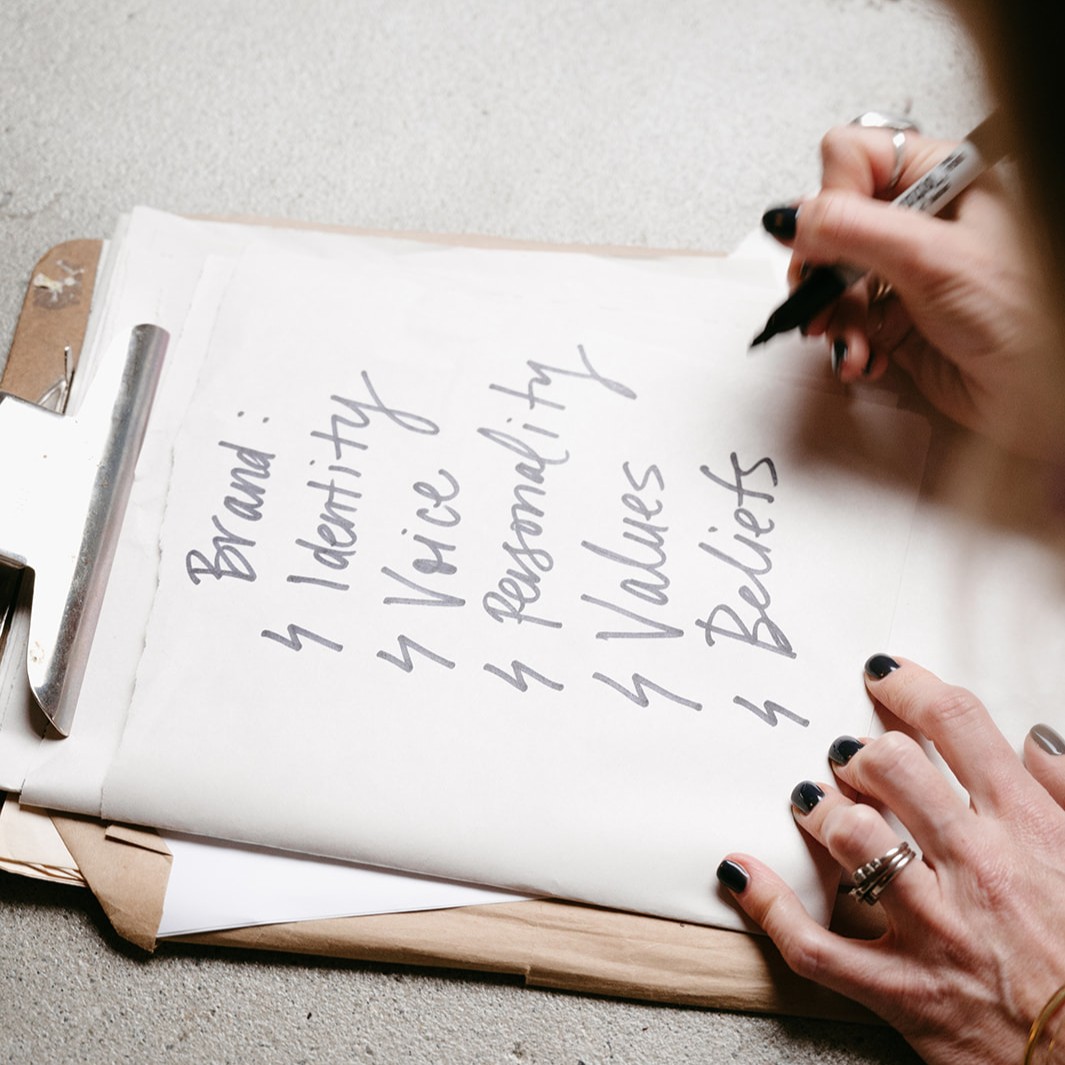 Brand:
↳ Identity
↳ Voice
↳ Personality
↳ Values
↳ Beliefs